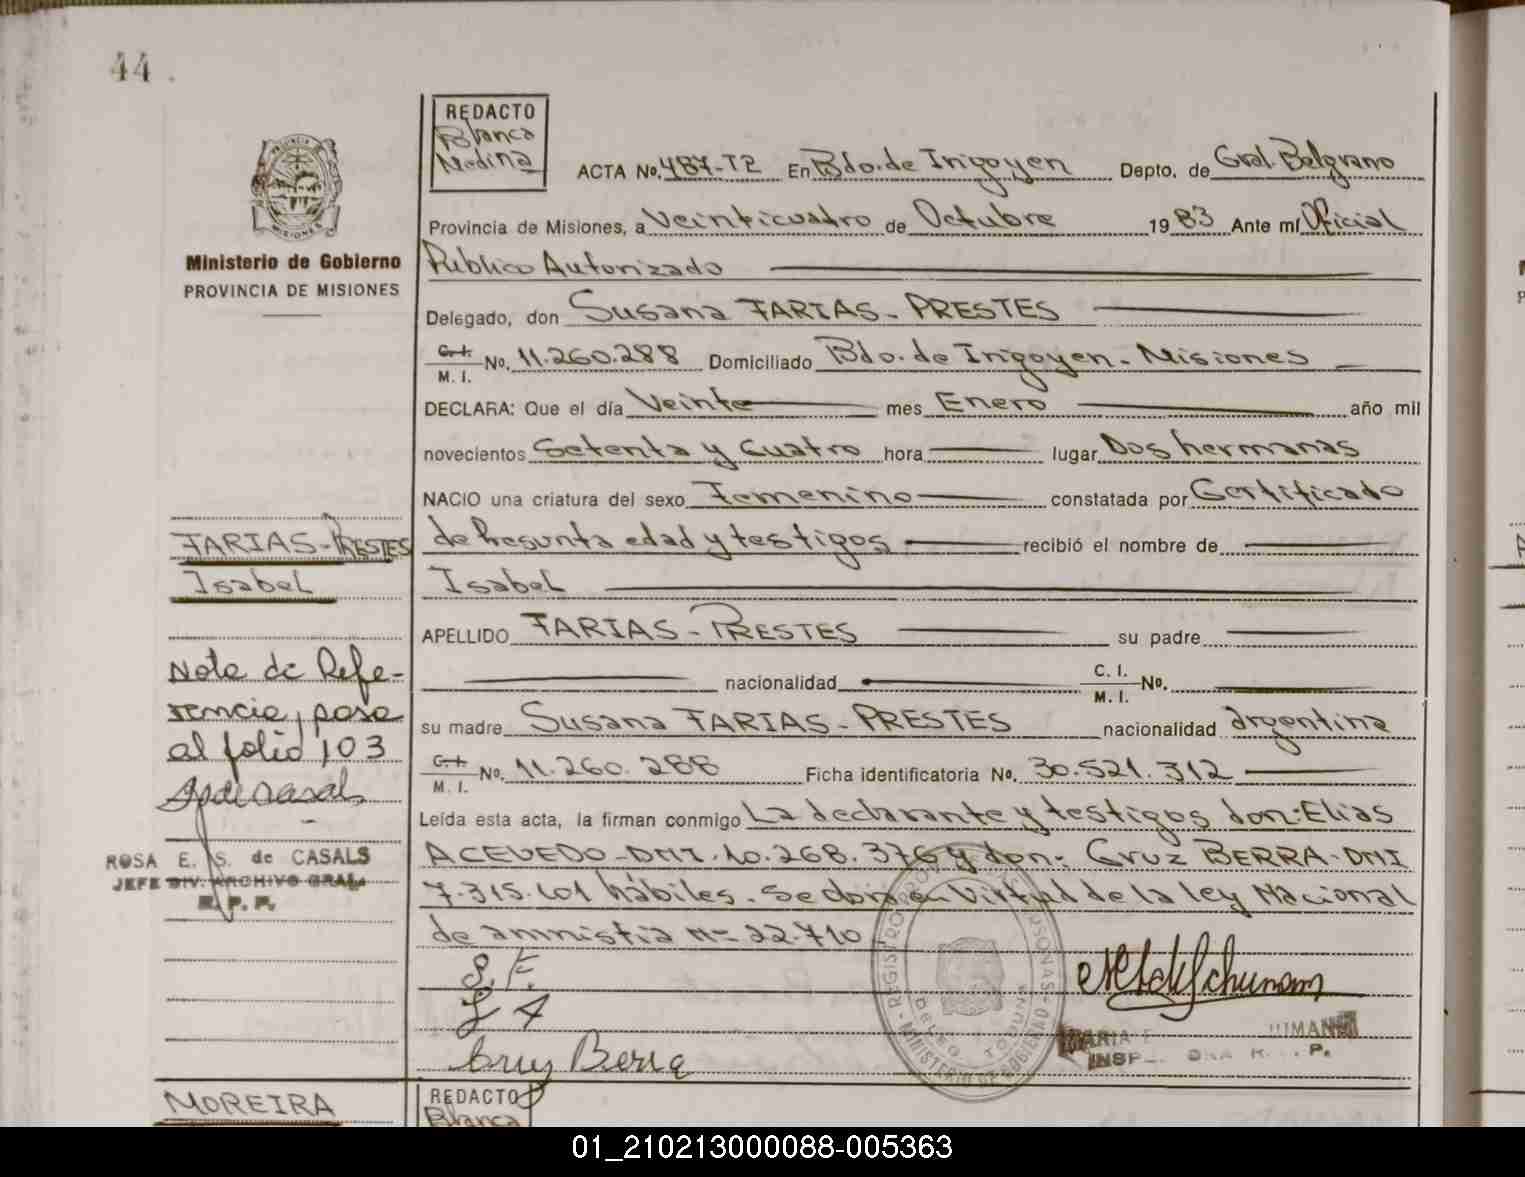 44
REDACTO
Blanca
Medina
ACTA No. 487-T2 En Bdo. de Irigoyen Depto. de Gral. Belgrano
PROVINCIA DE
MISIONES
Ministerio de Gobierno
PROVINCIA DE MISIONES
Provincia de Misiones, a Veinticuatro de Octubre 1983 Ante mí Oficial
Público Autorizado
Delegado, don Susana FARIAS-PRESTES
C. I.
M. I. No. 11.260.288 Domiciliado Bdo. de Irigoyen - Misiones
DECLARA: Que el día Veinte mes Enero año mil
novecientos Setenta y Cuatro hora lugar Dos hermanas
NACIO una criatura del sexo Femenino constatada por Certificado
de Presunta edad y testigos recibió el nombre de
Isabel
APELLIDO FARIAS-PRESTES su padre
nacionalidad C. I.
M. I. No.
su madre Susana FARIAS-PRESTES nacionalidad argentina
C. I.
M. I. No. 11.260.288 Ficha identificatoria No. 30.521.312
Leída esta acta, la firman conmigo La declarante y testigos don: Elias
ACEVEDO-DMI.10.268.376 y don: Cruz BERRA-DMI
7.315.101 hábiles. Se labra en Virtud de la ley Nacional
de amnistia Nº 22.710
S. F.
Cruz Berra
FARIAS-PRESTES
Isabel
Nota de Refe-
rencia, pasa
al folio 103
ROSA E. S. de CASALS
JEFE DIV. ARCHIVO GRAL.
R. P. P.
REGISTRO
MINISTERIO DE GOBIERNO
MOREIRA
REDACTO
Blanca
01_210213000088-005363